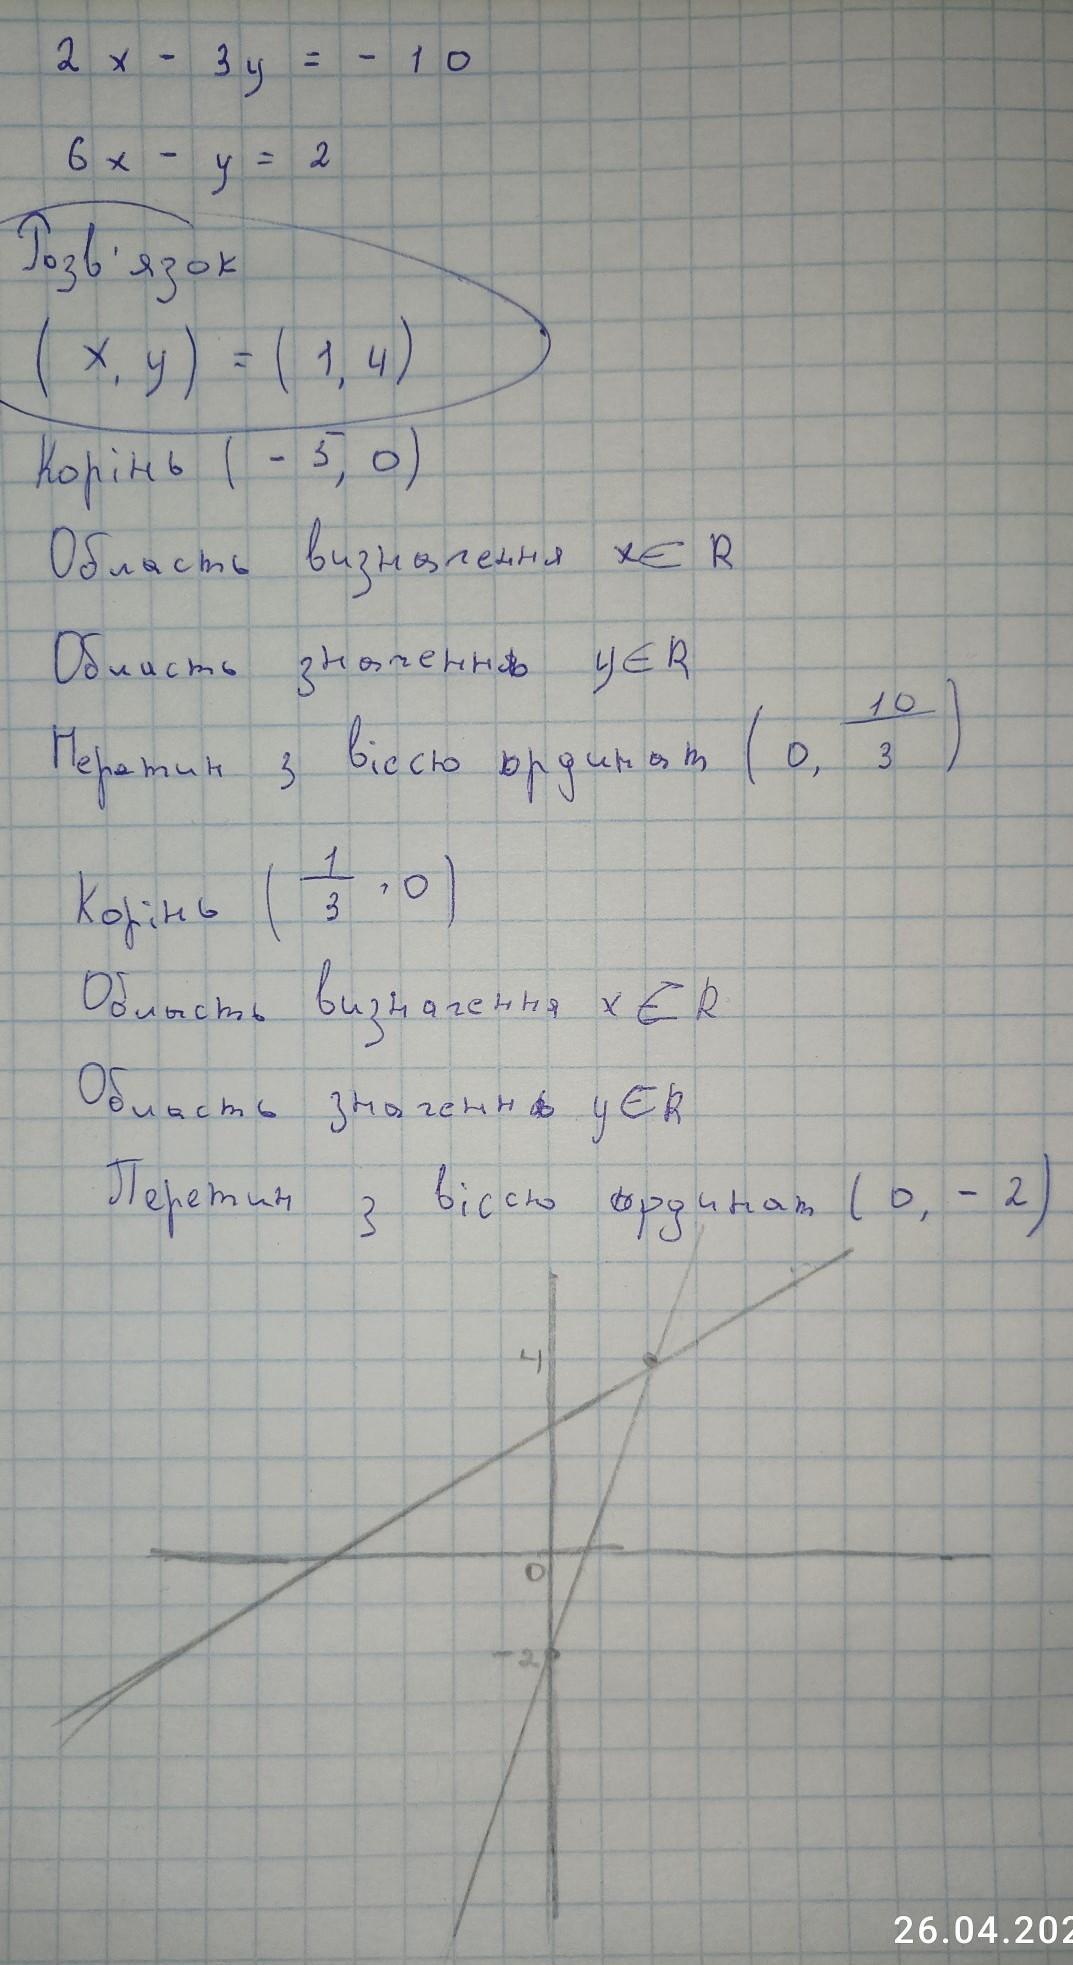 2x - 3y = -10
6x - y = 2
Розв'язок
(x, y) = (1, 4)
Корінь (-5, 0)
Область визначення x∈R
Область значення y∈R
Перетин з віссю ординат (0, 10/3)
Корінь (1/3, 0)
Область визначення x∈R
Область значення y∈R
Перетин з віссю ординат (0, -2)
4
0
-2
26.04.202